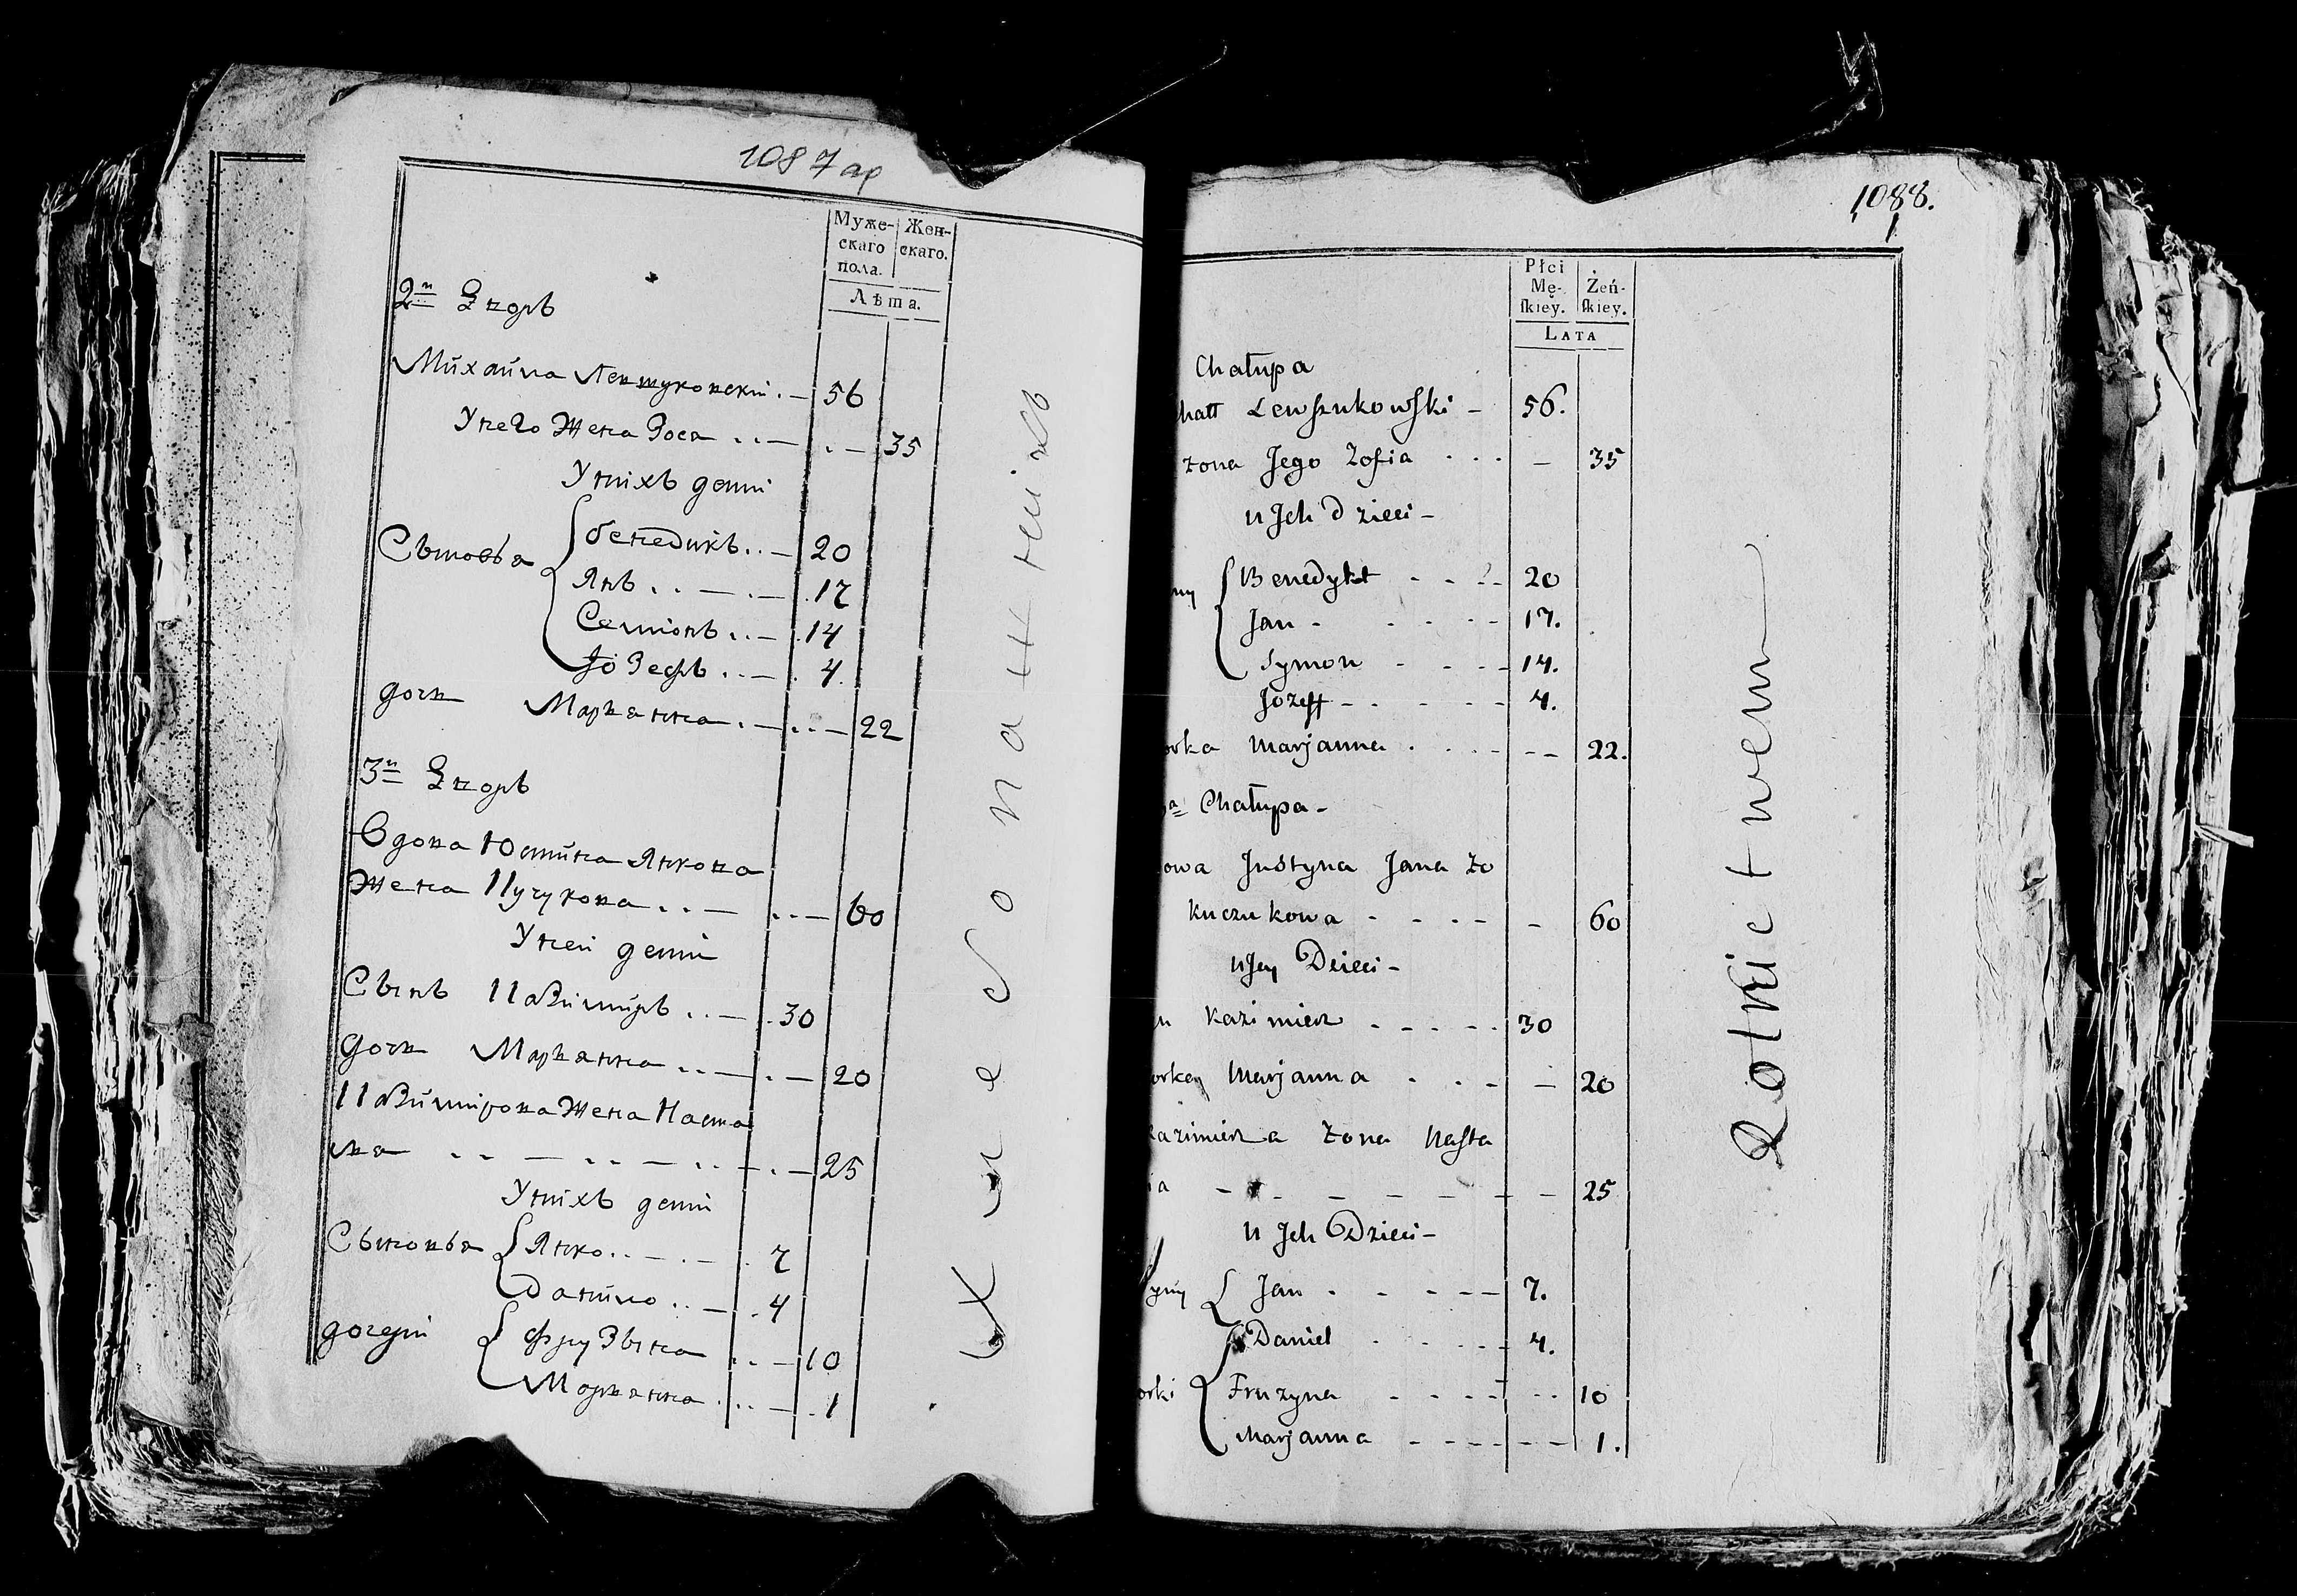 1087 ар
Муже-
скаго
пола.
Жен-
скаго.
Лѣта.
2й Дворъ
Михайла Левшуковскій . — 56
У него Жена Зося .. — 35
У нихъ дети
Сыновья
Бенедикъ .. — 20
Янъ .. — . — 17
Семіонъ .. — 14
Іозефъ .. — 4
дочь Марьянна . — .. — 22
3й Дворъ
Вдова Юстина Янкова
Жена Кучукова .. — .. — 60
У ней дети
Сынъ Казимиръ .. — 30
Дочь Марьянна .. — . — 20
Казимирова Жена Наста
.. — .. — .. — . — 25
У нихъ дети
Сыновья
Янко .. — . — 7
Данило .. — 4
дочери
Фрузына .. — 10
Марьянна . .. — 1
1088.
Płci
Mę-
skiey.
Żeń-
skiey.
LATA
Chałupa
hał Lewszukowski - 56.
żona Jego Zofia . . . - 35
u Jch dzieci -
ny
Benedykt - - - 20
Jan - - - - - 17.
Symon - - - - 14.
Jozeff - - - - - 4.
orka Marjanna . . - - - - 22.
a Chałupa -
owa Justyna Jana żo
Kuczukowa - - - - - 60
u Jey Dzieci -
n Kazimierz - - - - - 30
orkey Marjanna - - - - 20
azimierza żona Nasta
ia - - - - - - - 25
u Jch Dzieci -
yny
Jan - - - - - 7.
Daniel - - - - 4.
orki
Fruzyna - - - - - - 10
Marjanna - - - - - - - 1.